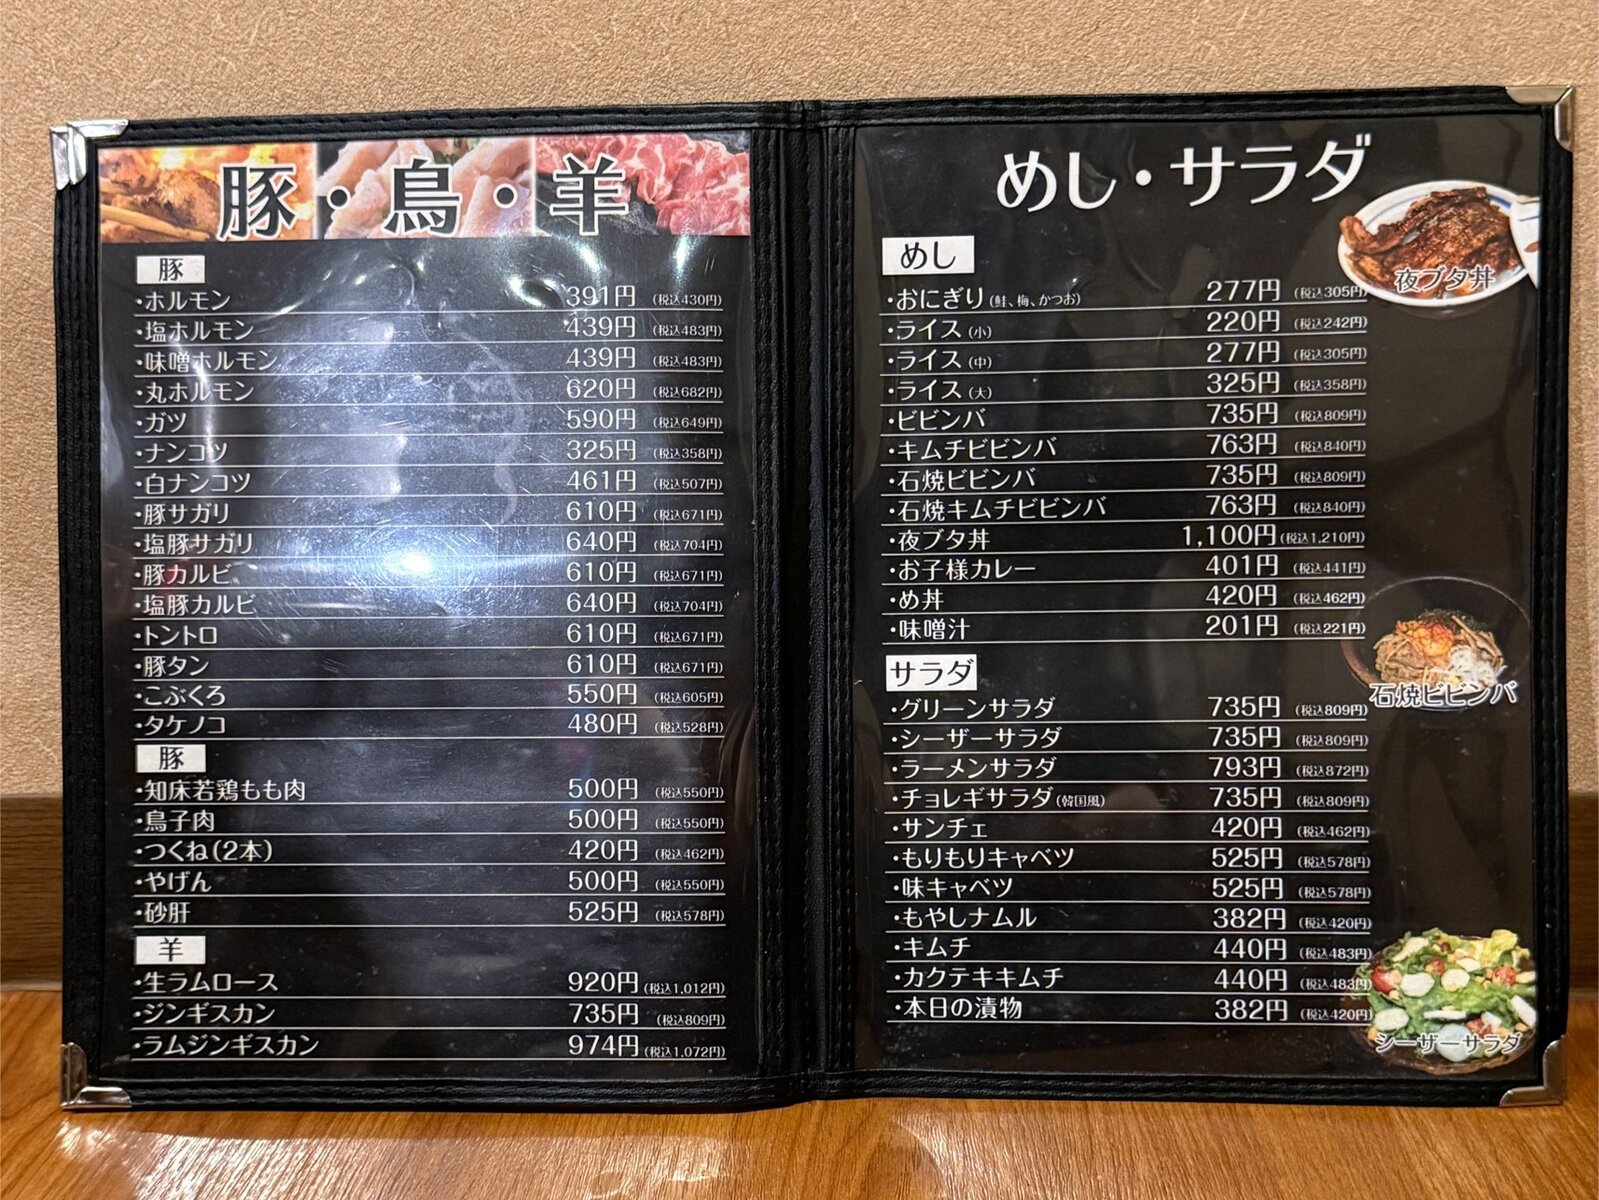 豚・鳥・羊
豚
・ホルモン 391円 (税込430円)
・塩ホルモン 439円 (税込483円)
・味噌ホルモン 439円 (税込483円)
・丸ホルモン 620円 (税込682円)
・ガツ 590円 (税込649円)
・ナンコツ 325円 (税込358円)
・白ナンコツ 461円 (税込507円)
・豚サガリ 610円 (税込671円)
・塩豚サガリ 640円 (税込704円)
・豚カルビ 610円 (税込671円)
・塩豚カルビ 640円 (税込704円)
・トントロ 610円 (税込671円)
・豚タン 610円 (税込671円)
・こぶくろ 550円 (税込605円)
・タケノコ 480円 (税込528円)
豚
・知床若鶏もも肉 500円 (税込550円)
・鳥子肉 500円 (税込550円)
・つくね(2本) 420円 (税込462円)
・やげん 500円 (税込550円)
・砂肝 525円 (税込578円)
羊
・生ラムロース 920円 (税込1,012円)
・ジンギスカン 735円 (税込809円)
・ラムジンギスカン 974円 (税込1,072円)
めし・サラダ
めし
・おにぎり(鮭、梅、かつお) 277円 (税込305円)
・ライス(小) 220円 (税込242円)
・ライス(中) 277円 (税込305円)
・ライス(大) 325円 (税込358円)
・ビビンバ 735円 (税込809円)
・キムチビビンバ 763円 (税込840円)
・石焼ビビンバ 735円 (税込809円)
・石焼キムチビビンバ 763円 (税込840円)
・夜ブタ丼 1,100円 (税込1,210円)
・お子様カレー 401円 (税込441円)
・め丼 420円 (税込462円)
・味噌汁 201円 (税込221円)
サラダ
・グリーンサラダ 735円 (税込809円)
・シーザーサラダ 735円 (税込809円)
・ラーメンサラダ 793円 (税込872円)
・チョレギサラダ(韓国風) 735円 (税込809円)
・サンチェ 420円 (税込462円)
・もりもりキャベツ 525円 (税込578円)
・味キャベツ 525円 (税込578円)
・もやしナムル 382円 (税込420円)
・キムチ 440円 (税込483円)
・カクテキキムチ 440円 (税込483円)
・本日の漬物 382円 (税込420円)
夜ブタ丼
石焼ビビンバ
シーザーサラダ